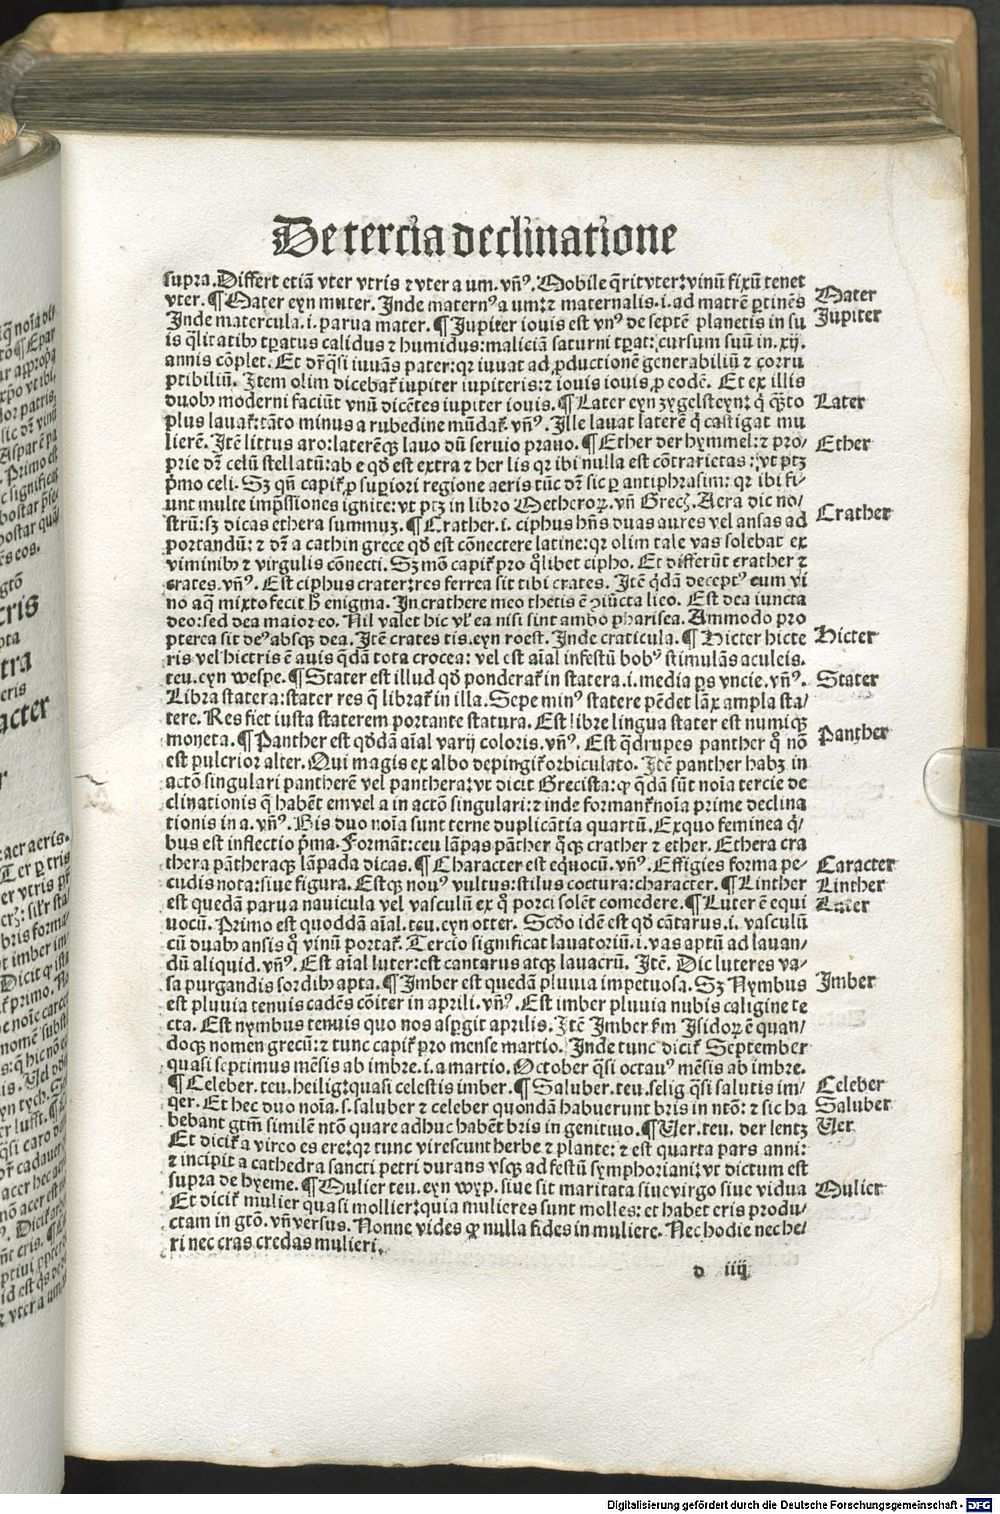 De tercia declinatione
supra. Differt etiã vter vtris ⁊ vter a um. vñꝰ. Mobile q̃rit vter: vinũ fixũ tenet
vter. ¶ Mater eyn muter. Inde maternꝰ a um: ⁊ maternalis .i. ad matrẽ ꝑtinẽs
Mater
Inde matercula .i. parua mater. ¶ Jupiter iouis est vnꝰ de septẽ planetis in su
Jupiter
is q̃litatibꝰ tꝑatus calidus ⁊ humidus: maliciã saturni tꝑat: cursum suũ in .xij.
annis cõplet. Et dr̃ q̃si iuuãs pater: qꝛ iuuat ad ꝓductionẽ generabiliũ ⁊ corru
ptibiliũ. Item olim dicebat̃ iupiter iupiteris: ⁊ iouis iouis, ꝓ eodẽ. Et ex illis
duobꝰ moderni faciũt vnũ dicẽtes iupiter iouis. ¶ Later eyn zygelsteyn: q̇ q̃to
Later
plus lauat̃: tãto minus a rubedine mũdat̃. vñꝰ. Ille lauat laterẽ q̇ castigat mu
lierẽ. Itẽ littus aro: laterẽqꝫ lauo dũ seruio prauo. ¶ Ether der hymmel: ⁊ pro/
Ether
prie dr̃ celũ stellatũ: ab e qd̃ est extra ⁊ her lis qꝛ ibi nulla est cõtrarietas: vt ptꝫ
p̃mo celi. Sꝫ qñ capit̃ ꝓ suꝑiori regione aeris tũc dr̃ sic ꝑ antiphrasim: qꝛ ibi fi/
unt multe imp̃ssiones ignite: vt ptꝫ in libro Metheorꝝ. vñ Grecꝫ. Aera dic no/
strũ: sꝫ dicas ethera summuꝫ. ¶ Crather .i. ciphus hñs duas aures vel ansas ad
Crather
portandũ: ⁊ dr̃ a cathin grece qd̃ est cõnectere latine: qꝛ olim tale vas solebat ex
viminibꝰ ⁊ virgulis cõnecti. Sꝫ mõ capit̃ pro q̃libet cipho. Et differũt crather ⁊
crates. vñꝰ. Est ciphus crater: res ferrea sit tibi crates. Itẽ q̃dã deceptꝰ cum vi
no aq̃ mixto fecit h̃ enigma. In crathere meo thetis ẽ ꝯiũcta lieo. Est dea iuncta
deo: sed dea maior eo. Nil valet hic vl̃ ea nisi sint ambo pharisea. Ammodo pro
pterea sit deꝰ absqꝫ dea. Itẽ crates tis. eyn roest. Inde craticula. ¶ Hicter hicte
Hicter
ris vel hictris ẽ auis q̃dã tota crocea: vel est aĩal infestũ bobꝰ stimulãs aculeis.
teu. eyn wespe. ¶ Stater est illud qd̃ ponderat̃ in statera .i. media ꝑs vncie. vñꝰ.
Stater
Libra statera: stater res q̃ librat̃ in illa. Sepe minꝰ statere pẽdet lãx ampla sta/
tere. Res fiet iusta staterem portante statura. Est libre lingua stater est numiqꝫ
moneta. ¶ Panther est qd̃dã aĩal varij coloris. vñꝰ. Est q̃drupes panther q̃ nõ
Panther
est pulcrior alter. Qui magis ex albo depingit̃ orbiculato. Itẽ panther habꝫ in
actõ singulari pantherẽ vel panthera: vt dicit Grecista: ꝙ q̃dã sũt noĩa tercie de
clinationis q̃ habẽt em vel a in actõ singulari: ⁊ inde formant̃ noĩa prime declina
tionis in a. vñꝰ. Bis duo noĩa sunt terne duplicãtia quartũ. Ex quo feminea q̇/
bus est inflectio p̃ma. Formãt: ceu lãpas pãther q̃qꝫ crather ⁊ ether. Ethera cra
thera pãtheraqꝫ lãpada dicas. ¶ Character est eq̇uocũ. vñꝰ. Effigies forma pe/
Caracter
cudis nota: siue figura. Estqꝫ nouꝰ vultus: stilus coctura: character. ¶ Linther
Linther
est quedã parua nauicula vel vasculũ ex q̃ porci solẽt comedere. ¶ Luter ẽ equi
Luter
uocũ. Primo est quoddã aĩal. teu. eyn otter. Scdo idẽ est qd̃ cãtarus .i. vasculũ
cũ duabꝰ ansis q̃ vinũ portat̃. Tercio significat lauatoriũ .i. vas aptũ ad lauan/
dũ aliquid. vñꝰ. Est aĩal luter: est cantarus atqꝫ lauacrũ. Itẽ. Dic luteres va/
sa purgandis sordibꝰ apta. ¶ Imber est quedã pluuia impetuosa. Sꝫ Nymbus
Imber
est pluuia tenuis cadẽs cõiter in aprili. vñꝰ. Est imber pluuia nubis caligine te
cta. Est nymbus tenuis quo nos asꝑgit aprilis. Itẽ Imber ẜm Isidoꝝ ẽ quan/
doqꝫ nomen grecũ: ⁊ tunc capit̃ pro mense martio. Inde tunc dicit̃ September
quasi septimus mẽsis ab imbre .i. a martio. October q̃si octauꝰ mẽsis ab imbre.
¶ Celeber. teu. heilig: quasi celestis imber. ¶ Saluber. teu. selig q̃si salutis im/
Celeber
qer. Et hec duo noĩa .s. saluber ⁊ celeber quondã habuerunt bris in ntõ: ⁊ sic ha
Saluber
bebant gtm̃ similẽ ntõ quare adhuc habẽt bris in genitiuo. ¶ Uer. teu. der lentz
Uer
Et dicit̃ a vireo es ere: qꝛ tunc virescunt herbe ⁊ plante: ⁊ est quarta pars anni:
⁊ incipit a cathedra sancti petri durans vsqꝫ ad festũ symphoriani: vt dictum est
supra de hyeme. ¶ Mulier teu. eyn wyp. siue sit maritata siue virgo siue vidua
Mulier
Et dicit̃ mulier quasi mollier: quia mulieres sunt molles: et habet eris produ/
ctam in gtõ. vñ versus. Nonne vides ꝙ nulla fides in muliere. Nec hodie nec he/
ri nec cras credas mulieri.
d iiij
Digitalisierung gefördert durch die Deutsche Forschungsgemeinschaft - DFG